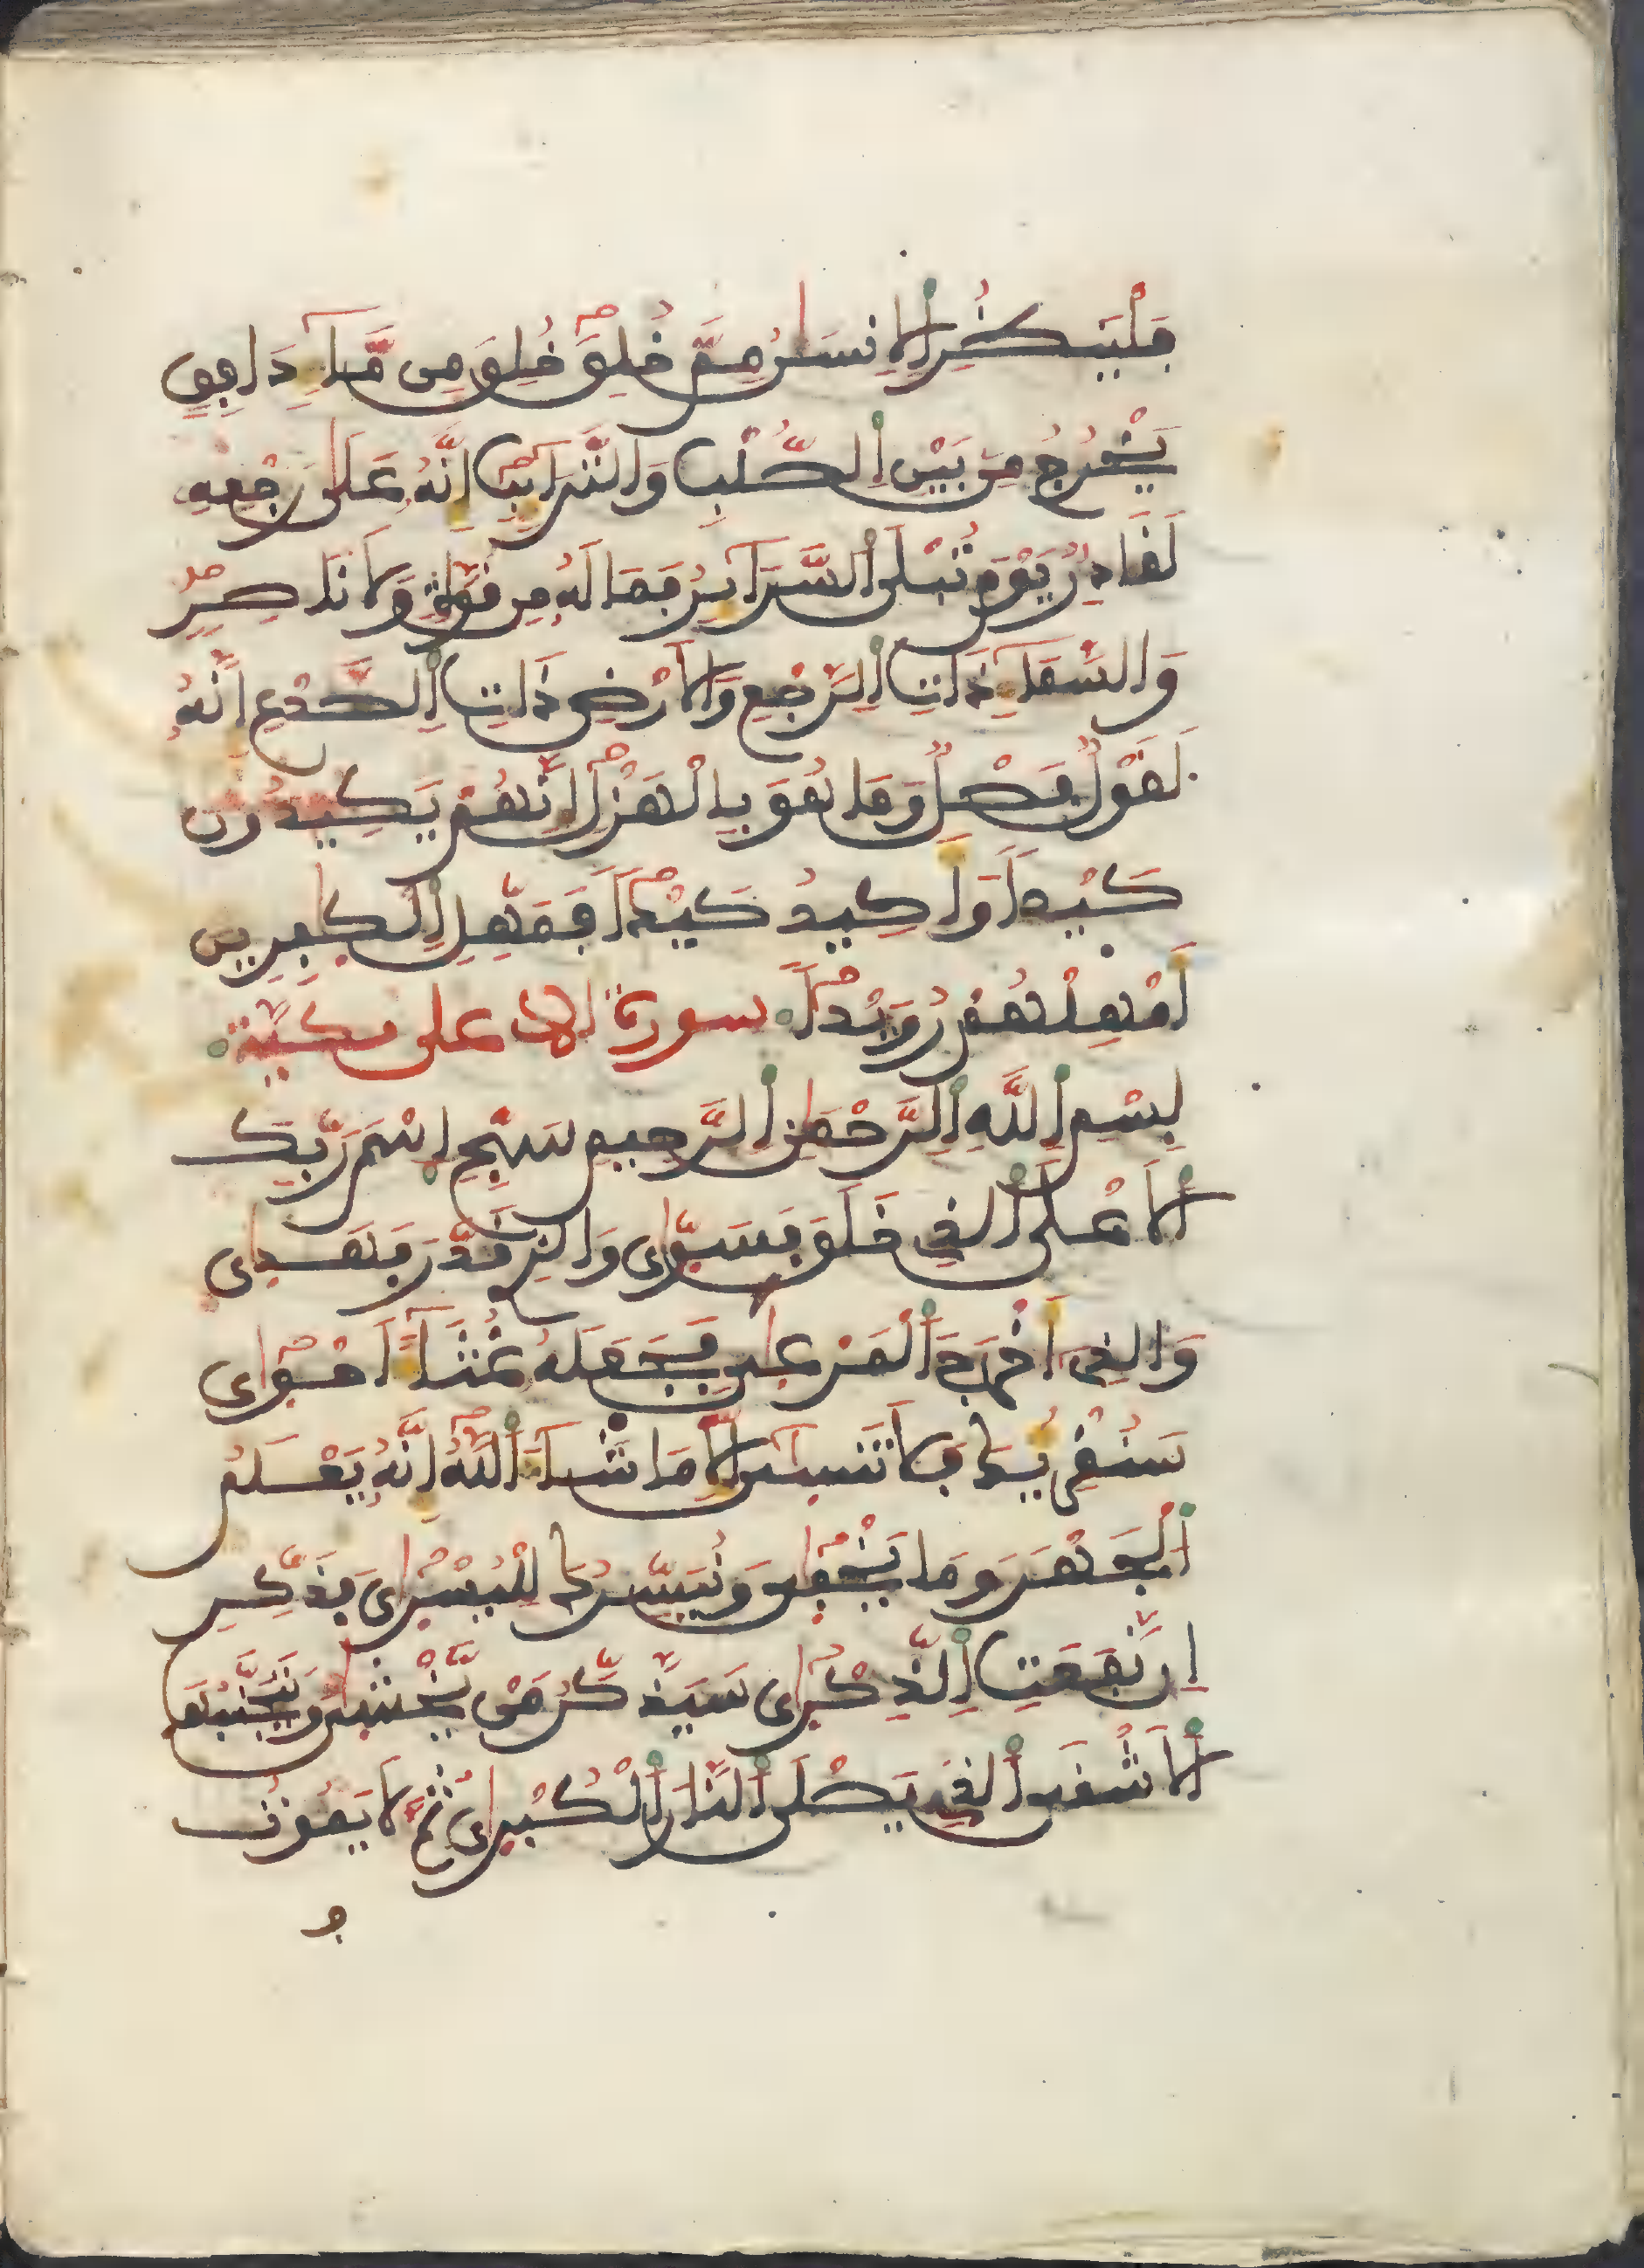 فَلْيَنظُرِ اِ۬لِانسَٰنُ مِمَّ خُلِقَ خُلِقَ مِن مَّآءٖ دَافِقٖ
يَخْرُجُ مِنۢ بَيْنِ اِ۬لصُّلْبِ وَالتَّرَآئِبِ إِنَّهُۥ عَلَىٰ رَجْعِهِۦ
لَقَادِرٞ يَوْمَ تُبْلَى اَ۬لسَّرَآئِرُ فَمَا لَهُۥ مِن قُوَّةٖ وَلَا نَاصِرٖ
وَالسَّمَآءِ ذَاتِ اِ۬لرَّجْعِ وَالَارْضِ ذَاتِ اِ۬لصَّدْعِ إِنَّهُۥ
لَقَوْلٞ فَصْلٞ وَمَا هُوَ بِالْهَزْلِ إِنَّهُمْ يَكِيدُونَ
كَيْداٗ وَأَكِيدُ كَيْداٗ فَمَهِّلِ اِ۬لْكٰفِرِينَ
أَمْهِلْهُمْ رُوَيْداَۢ سورة الاعلى مكية
بِسْمِ اِ۬للَّهِ اِ۬لرَّحْمَٰنِ اِ۬لرَّحِيمِ سَبِّحِ اِ۪سْمَ رَبِّكَ
اَ۬لَاعْلَى اَ۬لذِے خَلَقَ فَسَوّ۪ىٰ وَالذِے قَدَّرَ فَهَد۪ىٰ
وَالذِےٓ أَخْرَجَ اَ۬لْمَرْع۪ىٰ فَجَعَلَهُۥ غُثَآءً اَحْو۪ىٰ
سَنُقْرِئُكَ فَلَا تَنس۪ىٰٓ إِلَّا مَا شَآءَ اَ۬للَّهُ إِنَّهُۥ يَعْلَمُ
اُ۬لْجَهْرَ وَمَا يَخْف۪ىٰ وَنُيَسِّرُكَ لِلْيُسْر۪ىٰ فَذَكِّرِ
اِن نَّفَعَتِ اِ۬لذِّكْر۪ىٰ سَيَذَّكَّرُ مَنْ يَّخْش۪ىٰ وَيَتَجَنَّبُهَا
اَ۬لَاشْقَى اَ۬لذِے يَصْلَى اَ۬لنَّارَ اَ۬لْكُبْر۪ىٰ ثُمَّ لَا يَمُوتُ